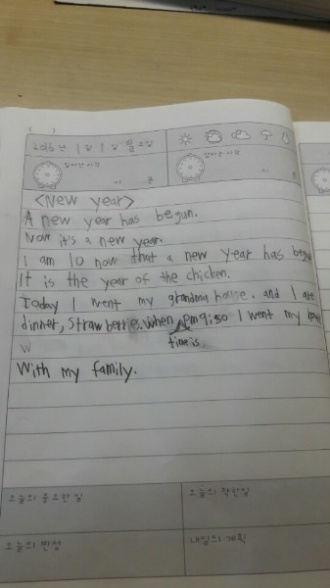 1월 1일 요일
일어난 시각
<New year>
A new year has begun.
Now it's a new year.
I am 10 now that a new year has
It is the year of the chicken.
Today I went my grandma house. and I ate
dinner, strawberries. When time is pm 9:50 I went my
W
With my family.
오늘의 중요한일
오늘의 착한일
오늘의 반성
내일의 계획